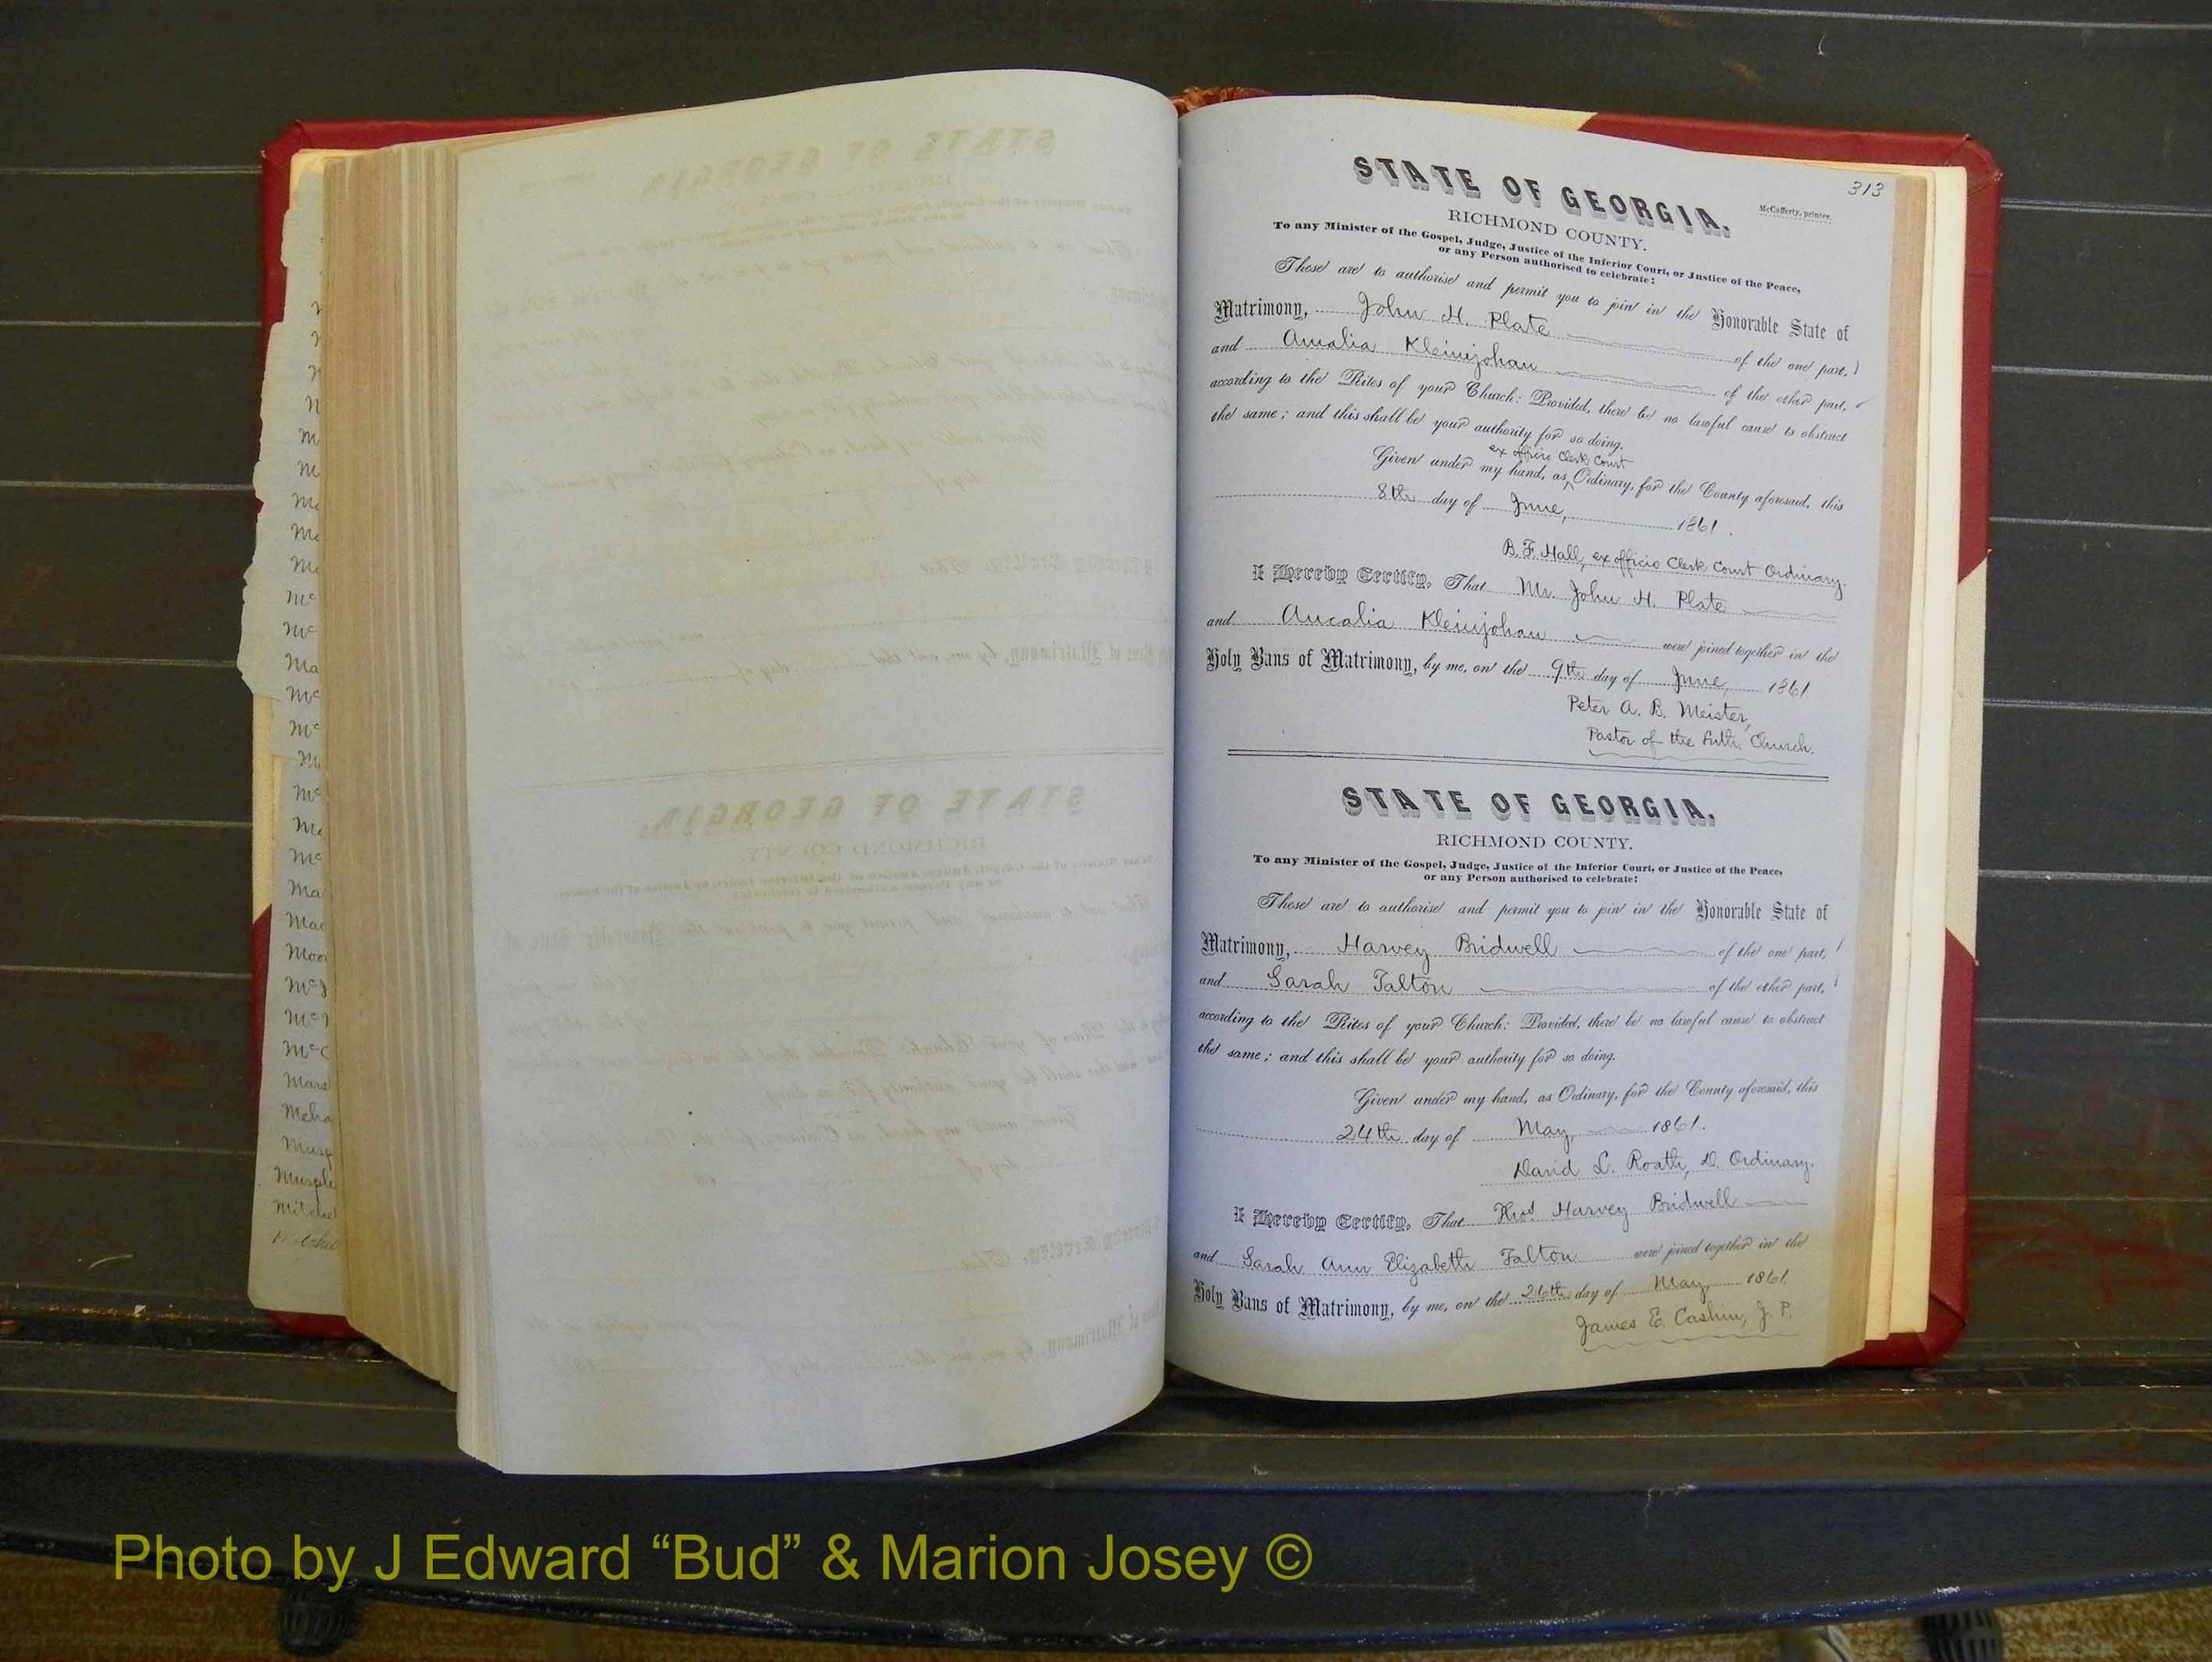 313
STATE OF GEORGIA.
McCafferty, printer.
RICHMOND COUNTY.
To any Minister of the Gospel, Judge, Justice of the Inferior Court, or Justice of the Peace,
or any Person authorised to celebrate:
These are to authorise and permit you to join in the Honorable State of
Matrimony, John H. Plate of the one part,
and Amalia Kleinjohan of the other part,
according to the Rites of your Church: Provided, there be no lawful cause to obstruct
the same; and this shall be your authority for so doing.
ex officio Clerk Court
Given under my hand, as Ordinary, for the County aforesaid, this
8th day of June, 1861.
B. F. Hall, ex officio Clerk Court Ordinary.
I Hereby Certify, That Mr. John H. Plate
and Amalia Kleinjohan were joined together in the
Holy Bans of Matrimony, by me, on the 9th day of June, 1861
Peter A. B. Meister,
Pastor of the Luth. Church.
STATE OF GEORGIA.
RICHMOND COUNTY.
To any Minister of the Gospel, Judge, Justice of the Inferior Court, or Justice of the Peace,
or any Person authorised to celebrate:
These are to authorise and permit you to join in the Honorable State of
Matrimony, Harvey Bridwell of the one part,
and Sarah Talton of the other part,
according to the Rites of your Church: Provided, there be no lawful cause to obstruct
the same; and this shall be your authority for so doing.
Given under my hand, as Ordinary, for the County aforesaid, this
24th day of May, 1861.
David L. Roath, D. Ordinary.
I Hereby Certify, That Thos Harvey Bridwell
and Sarah Ann Elizabeth Talton were joined together in the
Holy Bans of Matrimony, by me, on the 26th day of May, 1861.
James E. Cashin, J. P.
Photo by J Edward “Bud” & Marion Josey ©